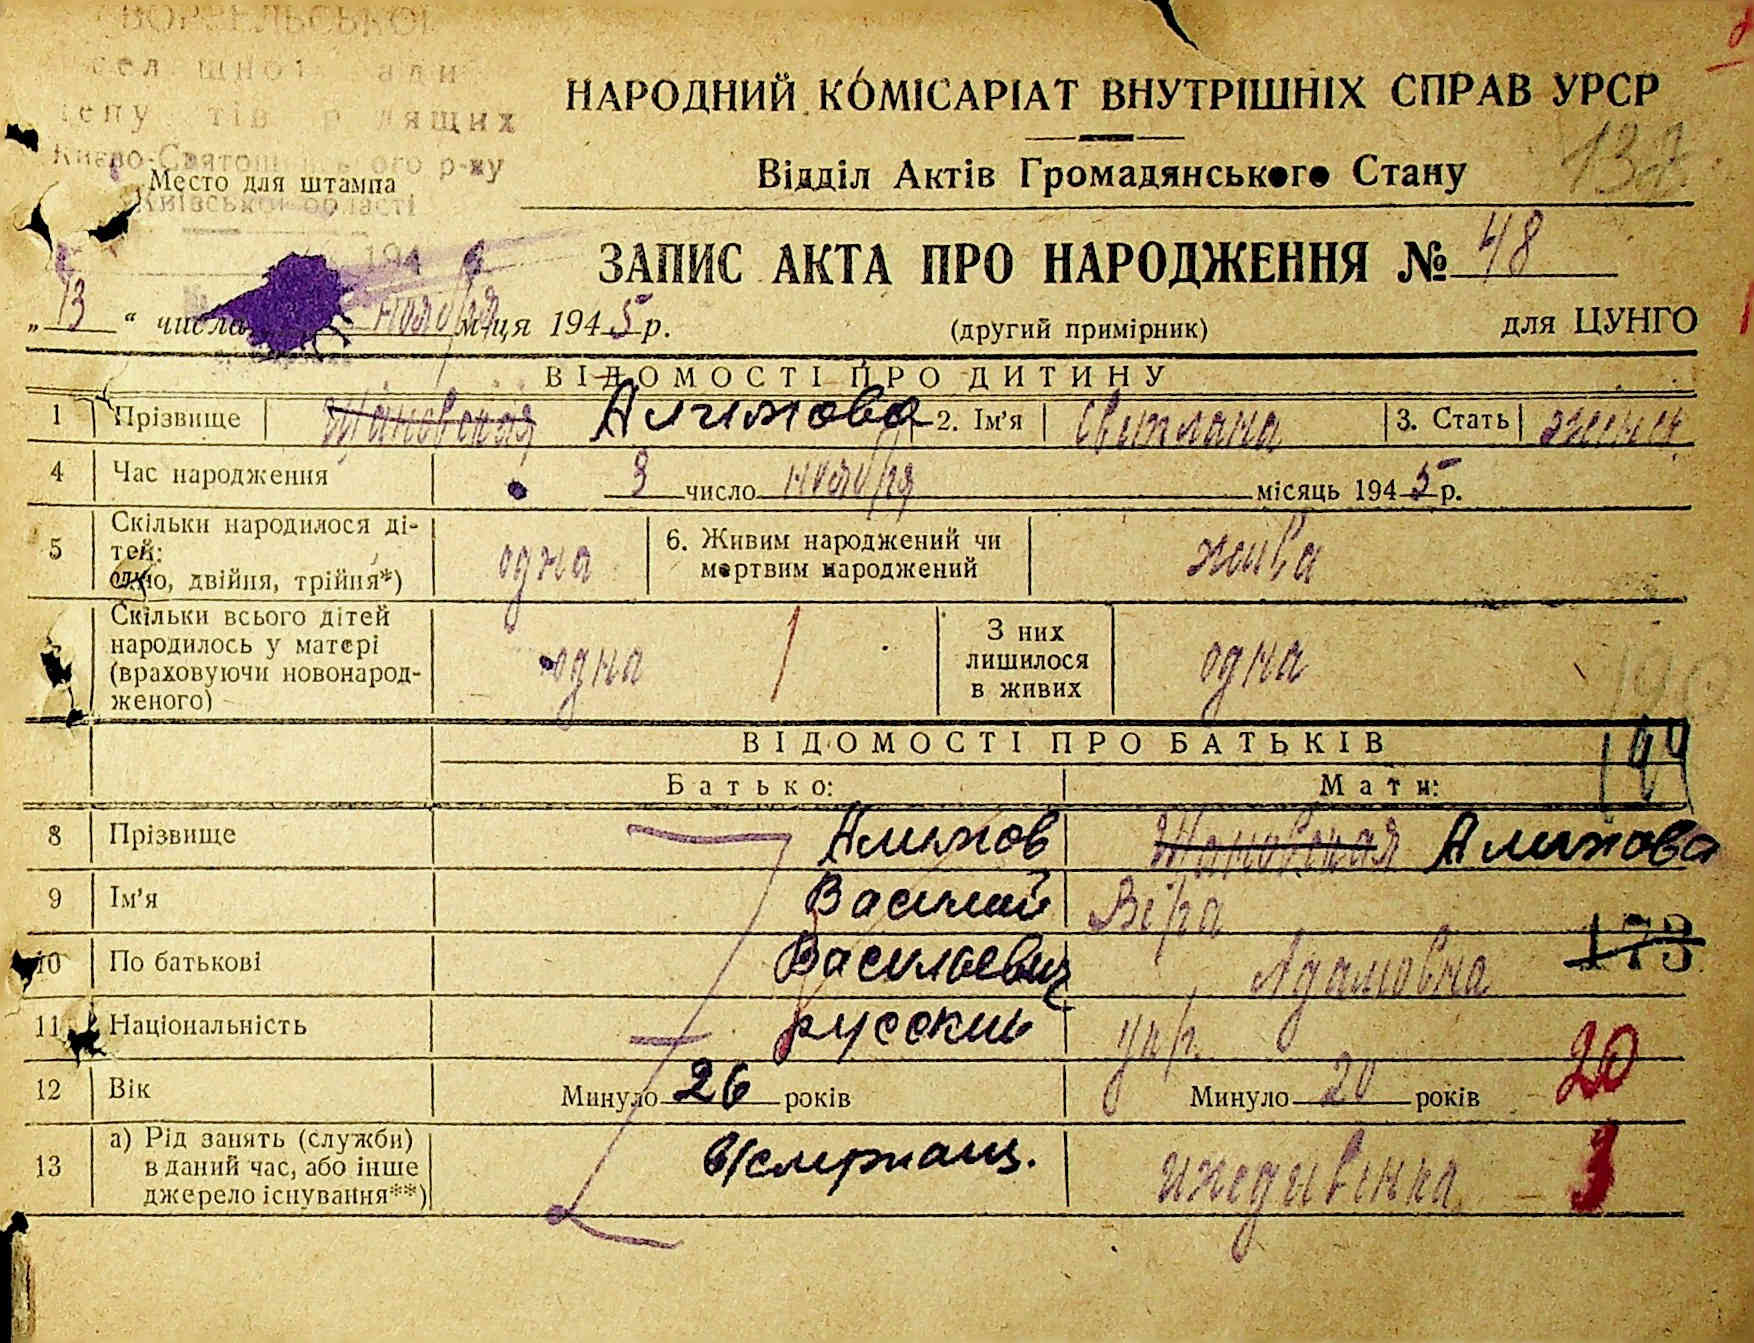 ВОРЗЕЛЬСЬКОЇ
Києво-Святошинського р-ну
Место для штампа
Київської області
НАРОДНИЙ КОМІСАРІАТ ВНУТРІШНІХ СПРАВ УРСР
Відділ Актів Громадянського Стану
194
ЗАПИС АКТА ПРО НАРОДЖЕННЯ № 48
„13“ числа ноября м-ця 1945 р.
(другий примірник)
для ЦУНГО
ВІДОМОСТІ ПРО ДИТИНУ
1 Прізвище Алимова 2. Ім'я Світлана 3. Стать
4 Час народження 3 число ноября місяць 1945 р.
5 Скільки народилося ді-
тей:
одно, двійня, трійня*) одна
6. Живим народжений чи
мертвим народжений жива
Скільки всього дітей
народилось у матері
(враховуючи новонарод-
женого) одна 1
З них
лишилося
в живих одна
ВІДОМОСТІ ПРО БАТЬКІВ
Батько: Мати:
8 Прізвище Алимов Алимова
9 Ім'я Василий Віра
10 По батькові Васильевич Адамовна
173
11 Національність русский укр.
12 Вік Минуло 26 років Минуло 20 років 20
13 а) Рід занять (служби)
в даний час, або інше
джерело існування**) иждивенка 3